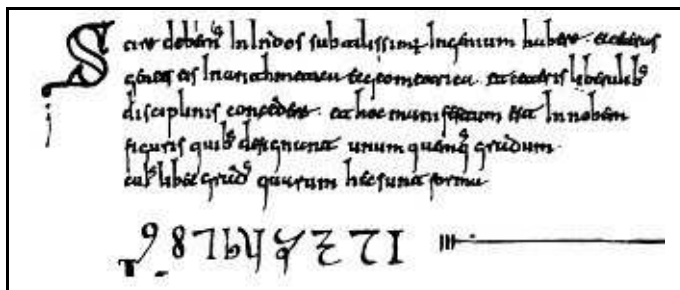 Scire debemꝰ In Indos subtilissimũ Ingenium habere · et ceteras
gentes eis In arithmetica et geometrica et ceteris liberalibꝰ
disciplinis concedere · et hoc manifestum est In nobem
figuris quibꝰ designant unum quemqꝰ gradum ·
cuiꝰlibet gradꝰ quarum hec sunt forma
9 8 7 6 5 4 3 2 1